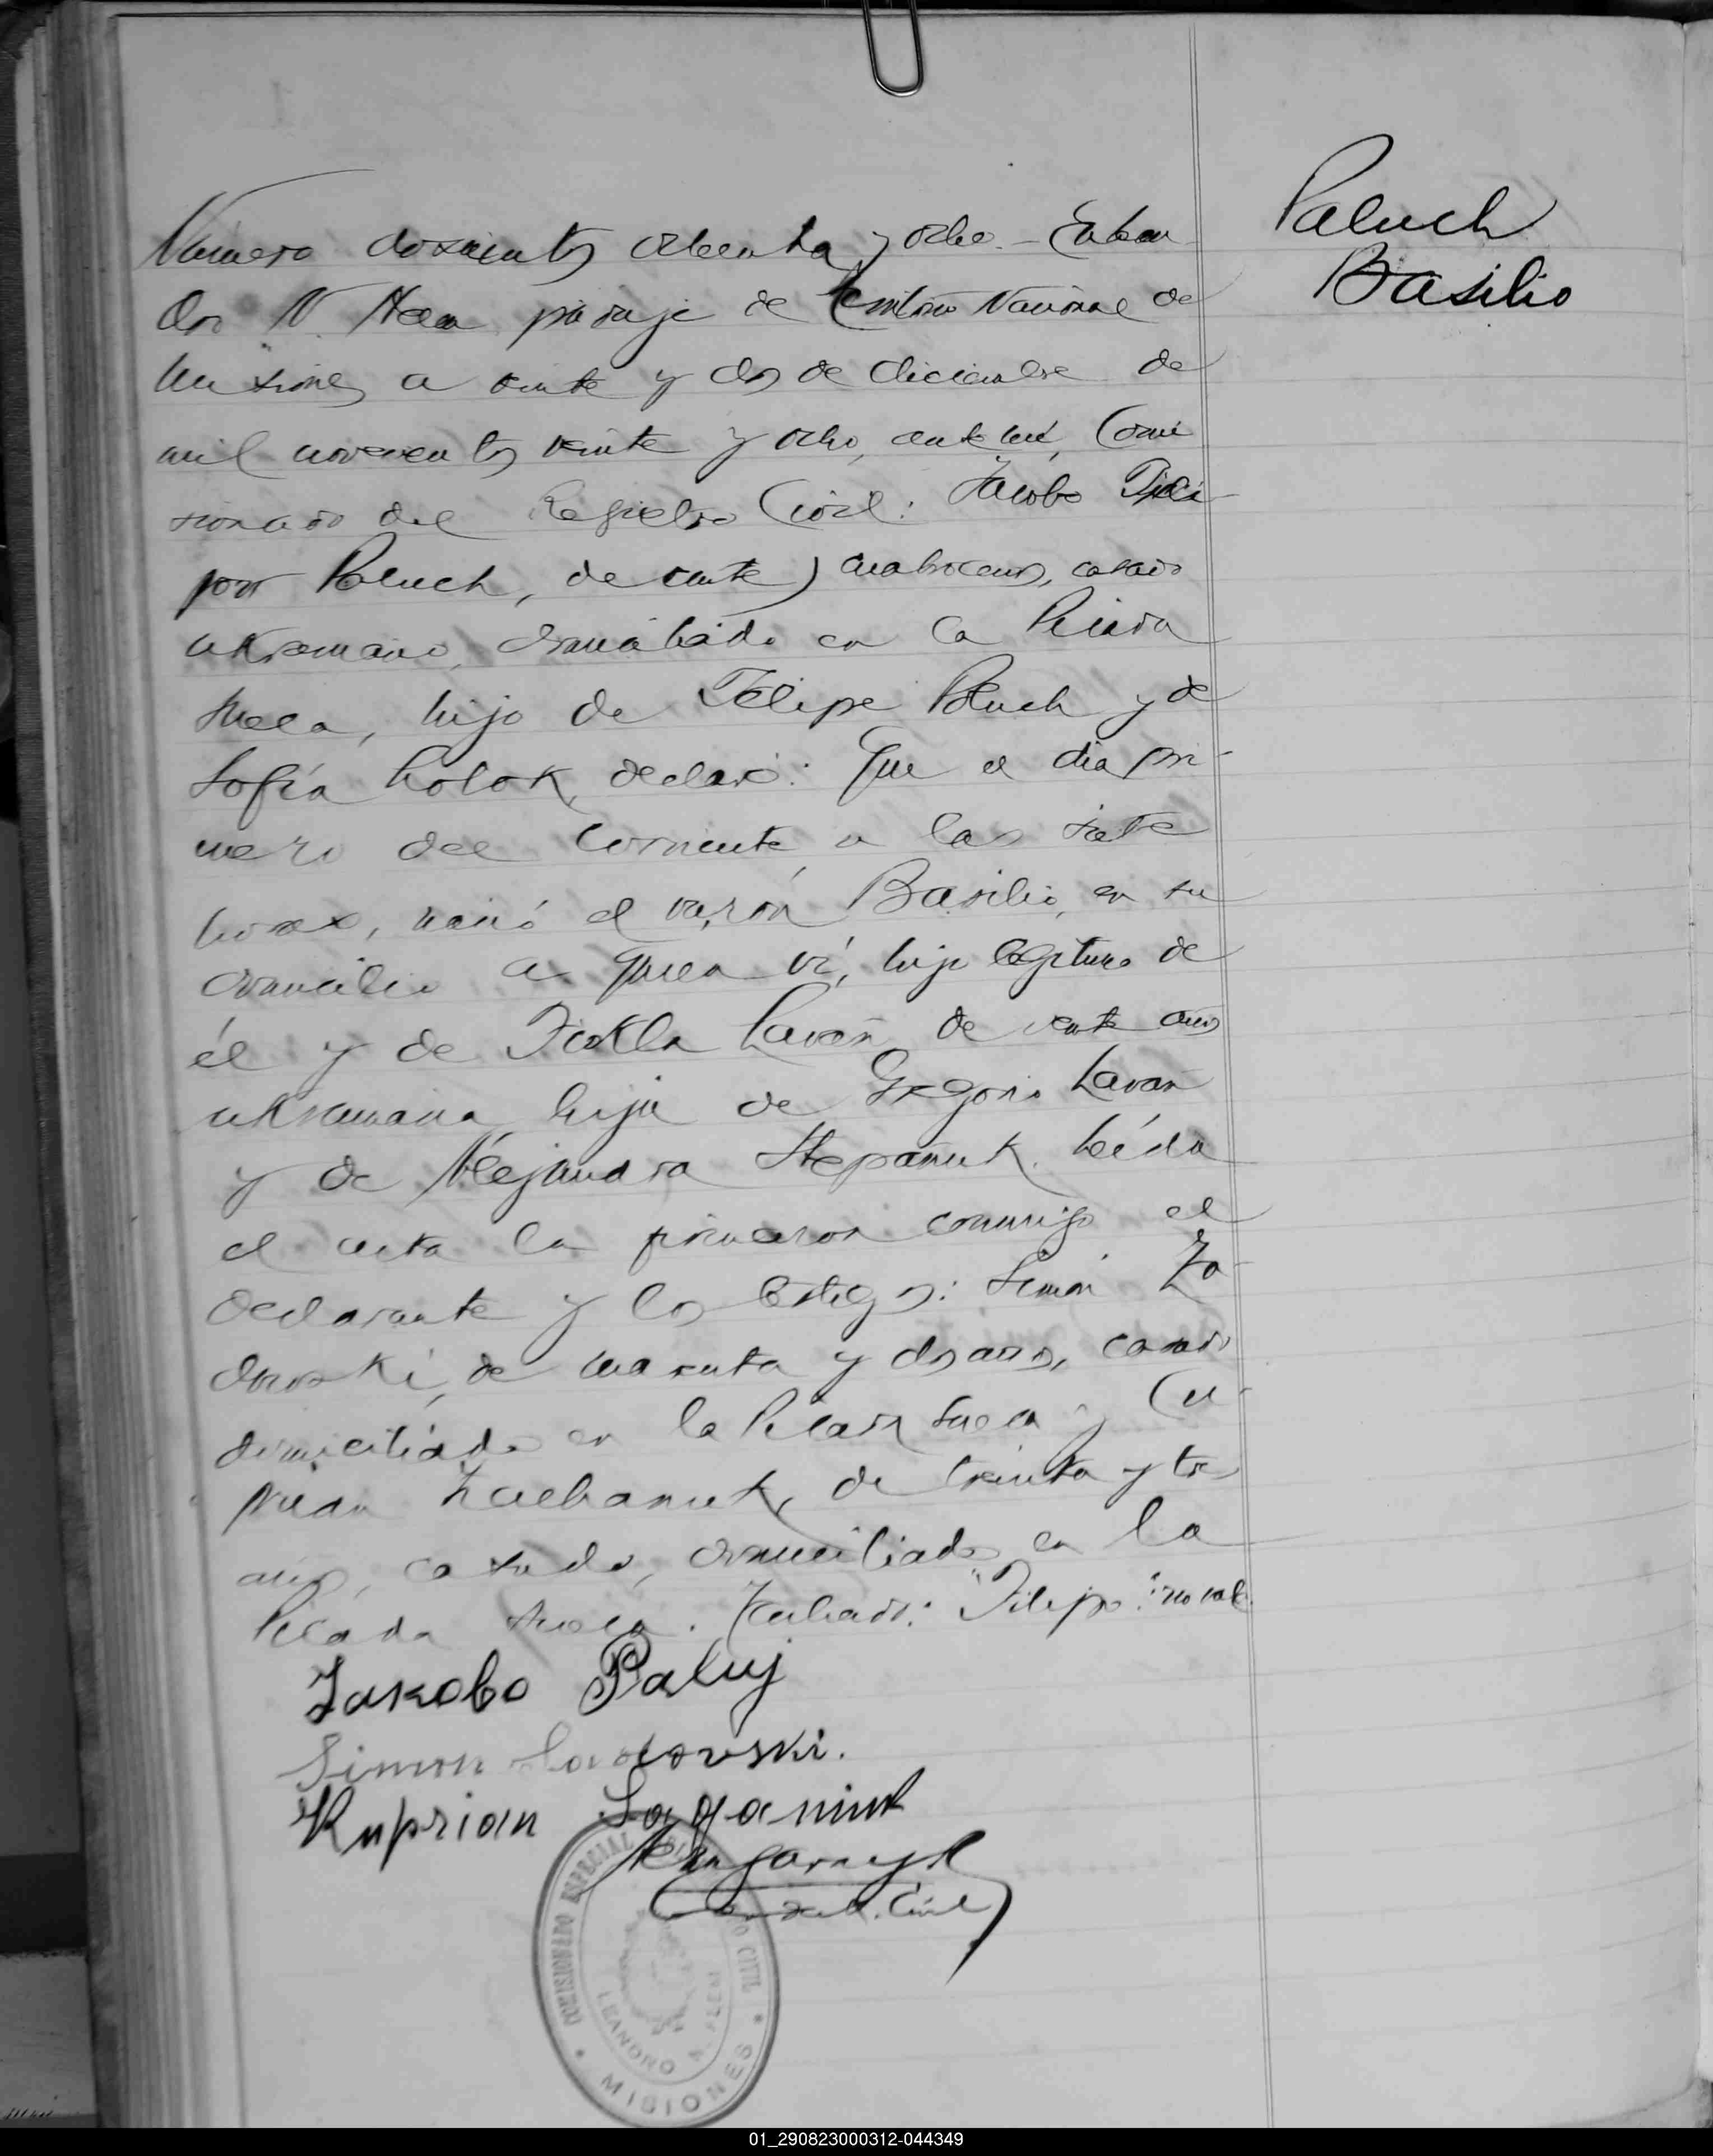 Número doscientos ochenta y ocho.- En Lean-
dro N. Alem paraje de Territorio Nacional de
Misiones a veinte y dos de diciembre de
mil novecientos veinte y ocho, ante mí, Comi
sionado del Registro Civil: Jacobo
Paluch, de veinte y cuatro años, casado
ukraniano, domiciliado en la Picada
Sueca, hijo de Felipe Paluch y de
Sofía Holok, declaró: Que el día pri-
mero del corriente a las siete
horas, nació el varón Basilio, en su
domicilio a quien vi, hijo legítimo de
él y de Tekla Lavan de veinte años
ukraniana hija de Gregorio Lavan
y de Alejandra Stepaniuk. Leída
el acta la firmaron conmigo el
declarante y los testigos: Simón Za-
dowski, de cuarenta y dos años, casado
domiciliado en la Picada Sueca y Cu-
prian Zachaniuk, de treinta y tres
años, casado, domiciliado en la
Picada Sueca. Testado: "Filipo": no vale.
Jakobo Paluj
Simon Sadovski.
Kuprian Saganiuk
Enc. Reg. Civil
COMISIONADO ESPECIAL REGISTRO CIVIL
LEANDRO N. ALEM
MISIONES
Paluch
Basilio
01_290823000312-044349